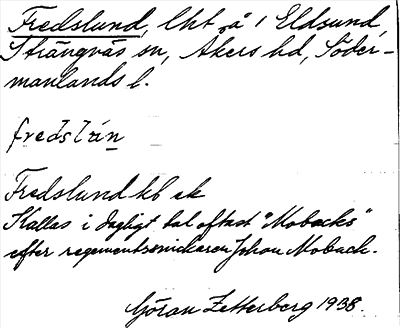 Fredslund, lht å 1 Eldsund,
Strängnäs sn, Åkers hd, Söder-
manlands l.
fredslún
Fredslund kb ek
Kallas i dagligt tal oftast "Mobacks"
efter regementssnickaren Johan Moback.
Göran Zetterberg 1938.